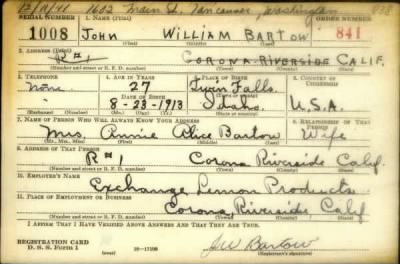 12/11/41 1602 Main St. Vancouver, Washington
SERIAL NUMBER 1. NAME (Print) ORDER NUMBER
1008 JOHN WILLIAM BARTOW 841
(First) (Middle) (Last)
2. ADDRESS (Print)
R#1 CORONA RIVERSIDE CALIF.
(Number and street or R. F. D. number) (Town) (County) (State)
3. TELEPHONE 4. AGE IN YEARS 5. PLACE OF BIRTH 6. COUNTRY OF CITIZENSHIP
None 27 Twin Falls
DATE OF BIRTH (Town or county)
8-23-1913 Idaho U.S.A.
(Exchange) (Number) (Mo.) (Day) (Yr.) (State or country)
7. NAME OF PERSON WHO WILL ALWAYS KNOW YOUR ADDRESS 8. RELATIONSHIP OF THAT PERSON
Mrs. Annie Alice Bartow Wife
(Mr., Mrs., Miss) (First) (Middle) (Last)
9. ADDRESS OF THAT PERSON
R#1 Corona Riverside Calif.
(Number and street or R. F. D. number) (Town) (County) (State)
10. EMPLOYER'S NAME
Exchange Lemon Products
11. PLACE OF EMPLOYMENT OR BUSINESS
Corona Riverside Calif
(Number and street or R. F. D. number) (Town) (County) (State)
I AFFIRM THAT I HAVE VERIFIED ABOVE ANSWERS AND THAT THEY ARE TRUE.
REGISTRATION CARD
D. S. S. Form 1 16-17105 JW Bartow
(Registrant's signature)